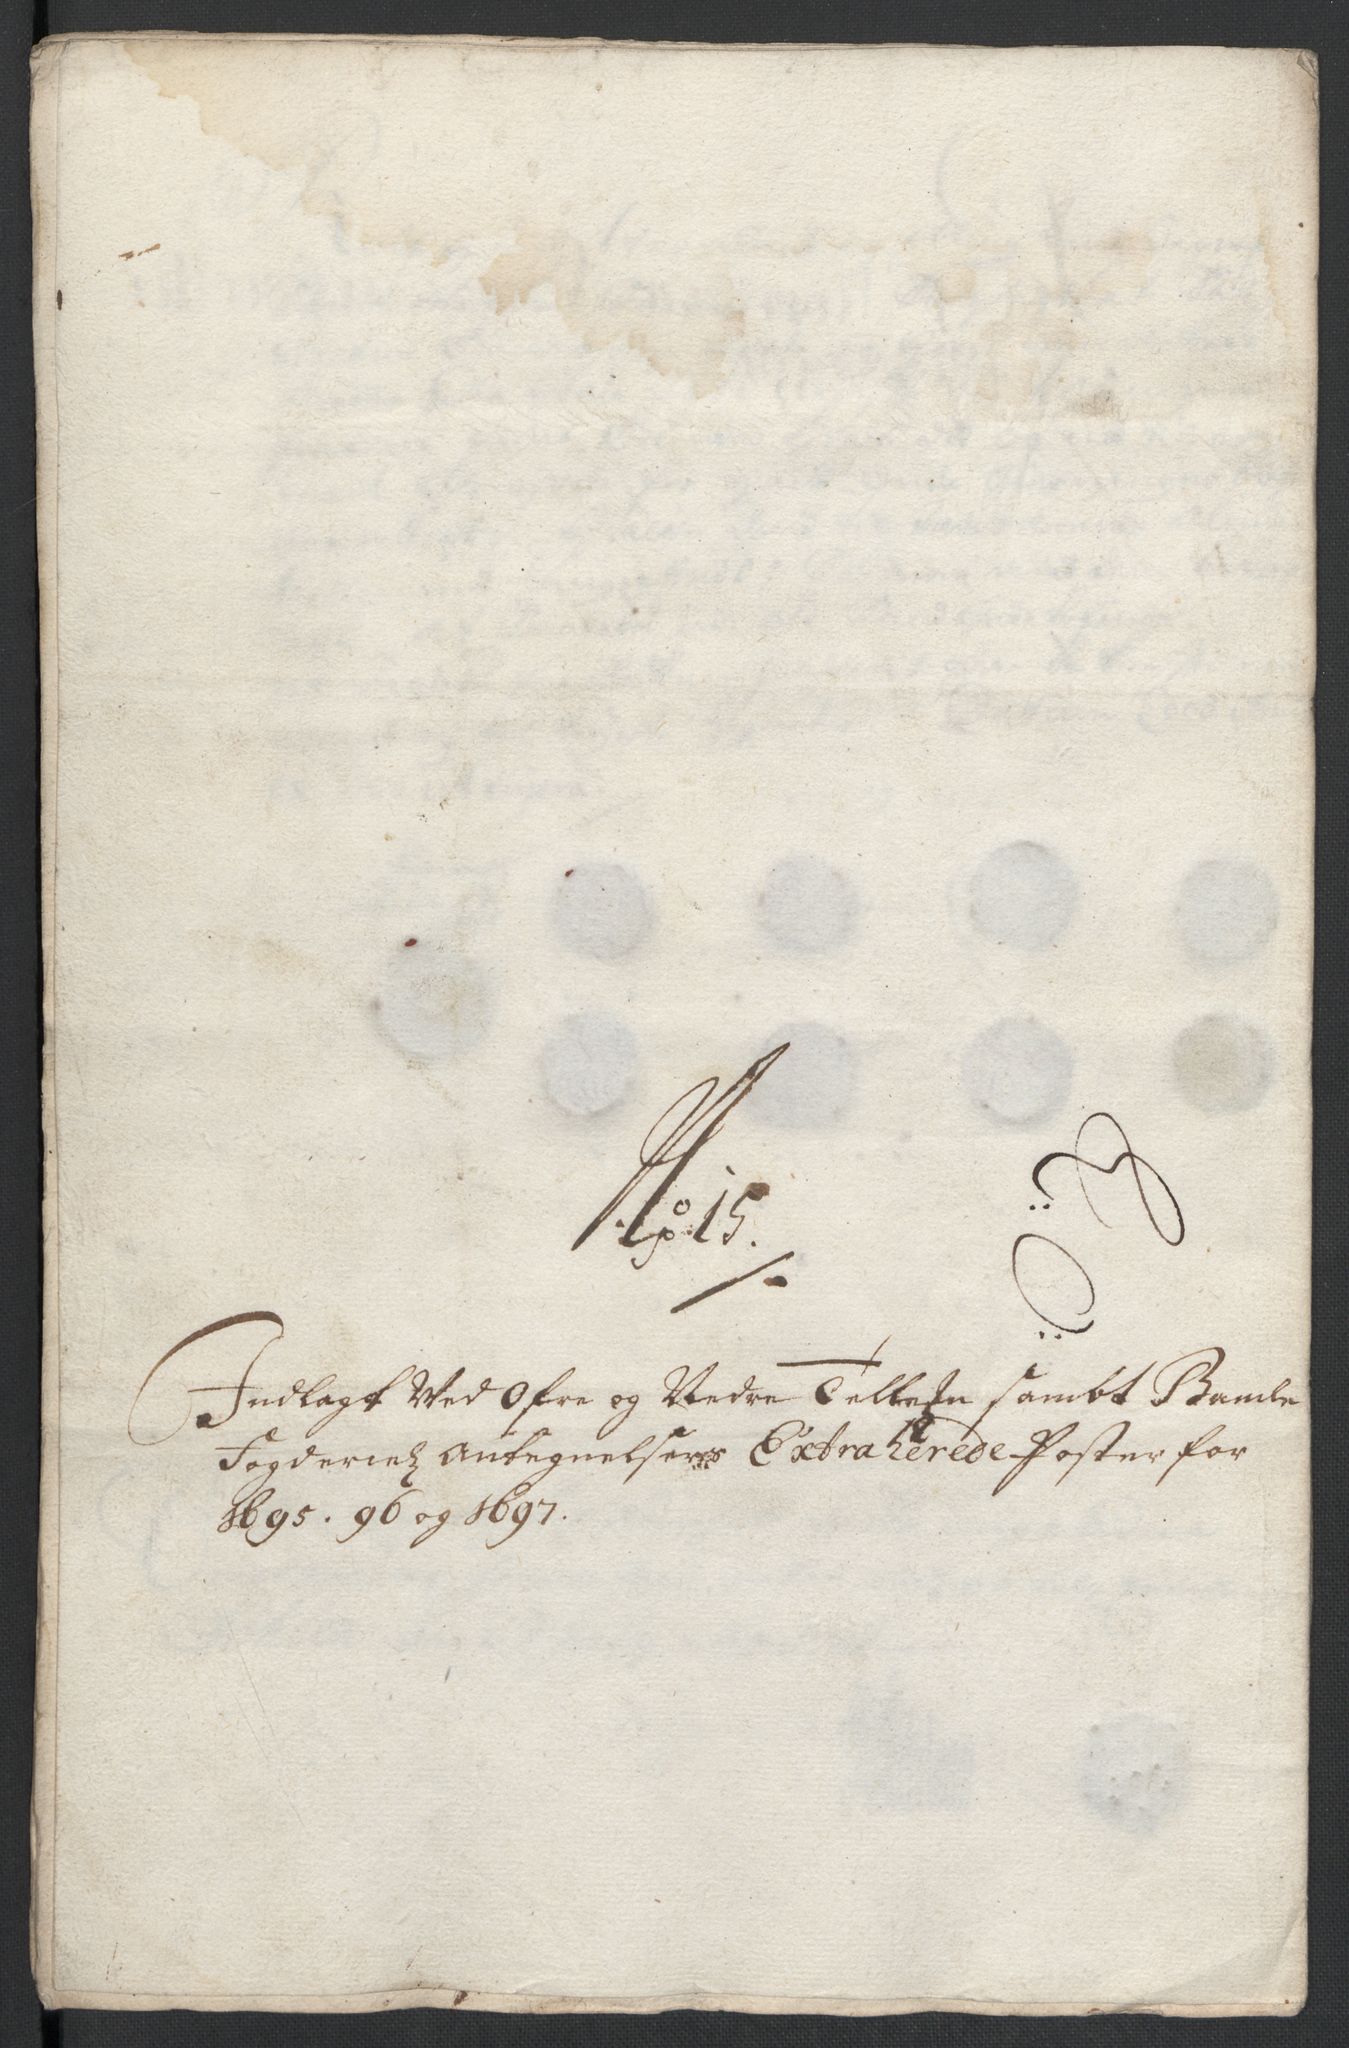 No: 15.
Indlagt Ved Øfre og Nedre Tellem̃: sambt Bamle
Fogderietz Antegnelsers Extraherede Poster for
1695. 96 og 1697.